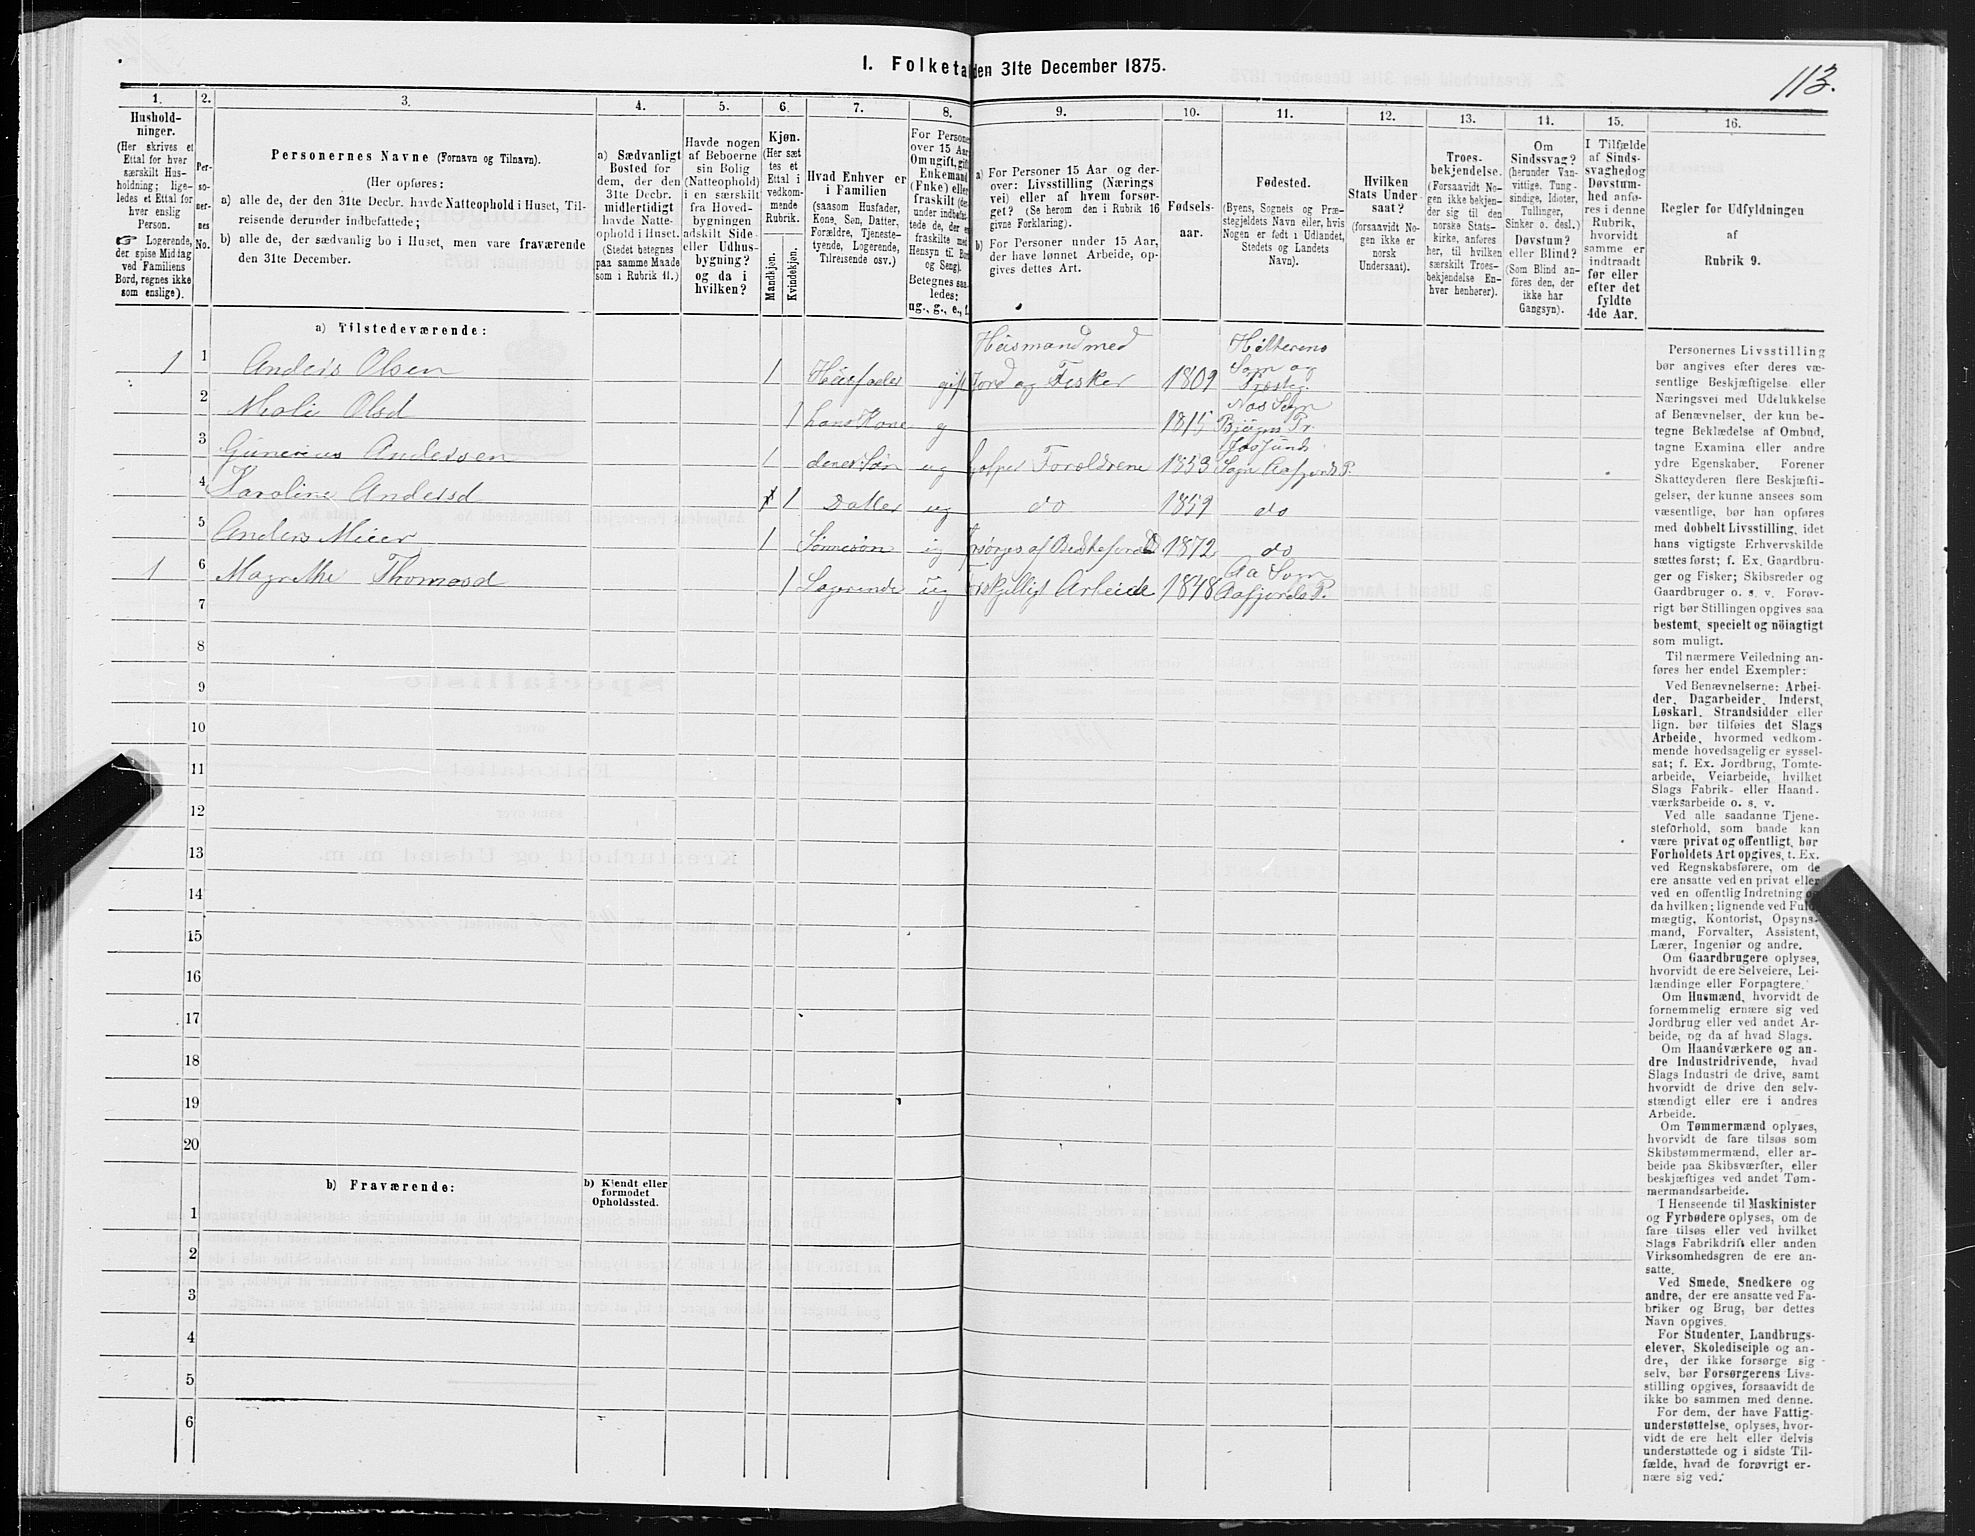 I. Folketal den 31te December 1875.
113.
1.
2.
3.
4.
5.
6.
7.
8.
9.
10.
11.
12.
13.
14.
15.
16.
Hushold-
ninger.
(Her skrives et
Ettal for hver
særskilt Hus-
holdning; lige-
ledes et Ettal for
hver enslig
Person.
☞ Logerende,
der spise Middag
ved Familiens
Bord, regnes ikke
som enslige).
Per-
so-
ner-
nes
No.
Personernes Navne (Fornavn og Tilnavn).
(Her opføres:
a) alle de, der den 31te Decbr. havde Natteophold i Huset, Til-
reisende derunder indbefattede;
b) alle de, der sædvanlig bo i Huset, men vare fraværende
den 31te December.
a) Sædvanligt
Bosted for
dem, der den
31te Decbr.
midlertidigt
havde Natte-
ophold i Huset.
(Stedet betegnes
paa samme Maade
som i Rubrik 11.)
Havde nogen
af Beboerne
sin Bolig
(Natteophold)
i en særskilt
fra Hoved-
bygningen
adskilt Side-
eller Udhus-
bygning?
og da i
hvilken?
Kjøn.
(Her sæt
tes et
Ettal i
vedkom-
mende
Rubrik.
Mandkjøn.
Kvindekjøn.
Hvad Enhver er
i Familien
(saasom Husfader,
Kone, Søn, Datter,
Forældre, Tjeneste-
tyende, Logerende,
Tilreisende osv.)
For Personer
over 15 Aar
Om ugift, gift
Enkemand
(Enke) eller
fraskilt (der-
under indbefat-
tede de, der er
fraskilte med
Hensyn til Bord
og Seng).
Betegnes saa-
ledes:
ug., g., e., f.
a) For Personer 15 Aar og der-
over: Livsstilling (Nærings
vei) eller af hvem forsør-
get? (Se herom den i Rubrik 16
givne Forklaring).
b) For Personer under 15 Aar,
der have lønnet Arbeide, op-
gives dettes Art.
Fødsels-
aar.
Fødested.
(Byens, Sognets og Præ-
stegjeldets Navn eller, hvis
Nogen er født i Udlandet,
Stedets og Landets
Navn).
Hvilken
Stats Under-
saat?
(forsaavidt No-
gen ikke er
norsk
Undersaat).
Troes-
bekjendelse.
(Forsaavidt No-
gen ikke bekjen-
der sig til den
norske Stats-
kirke, anføres
her, til hvilken
særskilt Troes-
bekjendelse En-
hver henhører).
Om
Sindssvag?
(herunder Van-
vittige, Tung-
sindige, Idioter,
Tullinger,
Sinker o. desl.)
Døvstum?
eller Blind?
(Som Blind an-
føres den, der
ikke har
Gangsyn).
I Tilfælde
af Sinds-
svaghed og
Døvstum-
hed anfø-
res i denne
Rubrik,
hvorvidt
samme er
indtraadt
før eller
efter det
fyldte
4de Aar.
Regler for Udfyldningen
af
Rubrik 9.
a) Tilstedeværende:
1 1 Anders Olsen 1 Husfader gift Husmand med Jord og Fisker 1809 Hitterens Sogn og Præsteg
2 Mali Olsd 1 hans Kone g 1815 Næs Sogn Bjugns Pr
3 Gunerius Andersen 1 deres Søn ug hjelper Forældrene 1853 Jøssunds Sogn Aafjords P.
4 Karoline Andersd 1 Datter ug do 1859 do
5 Anders Meier 1 Sønnesøn ug forsørges af Bedstefor 1872 do
1 6 Magrethe Thomasd 1 Logerende ug forskjelligt Arbeide 1848 Aa Sogn Aafjords P.
7
8
9
10
11
12
13
14
15
16
17
18
19
20
b) Fraværende:
b) Kjendt eller
formodet
Opholdssted.
1
2
3
4
5
6
Personernes Livsstilling
bør angives efter deres væ-
sentlige Beskjæftigelse eller
Næringsvei med Udelukkelse
af Benævnelser, der kun be-
tegne Beklædelse af Ombud,
tagne Examina eller andre
ydre Egenskaber. Forener
Skatteyderen flere Beskjæfti-
gelser, der kunne ansees som
væsentlige, bør han opføres
med dobbelt Livsstilling, idet
hans vigtigste Erhvervskilde
sættes først; f. Ex. Gaardbru-
ger og Fisker; Skibsreder og
Gaardbruger o. s. v. Forøv-
rigt bør Stillingen opgives saa
bestemt, specielt og nöiagtigt
som muligt.
Til nærmere Veiledning an-
føres her endel Exempler:
Ved Benævnelserne: Arbei-
der, Dagarbeider, Inderst,
Løskarl, Strandsidder eller
lign. bør tilføies det Slags
Arbeide, hvormed vedkom-
mende hovedsagelig er syssel-
sat; f. Ex. Jordbrug, Tomte-
arbeide, Veiarbeide, hvilket
Slags Fabrik- eller Haand-
værksarbeide o. s. v.
Ved alle saadanne Tjene-
steforhold, som baade kan
være privat og offentligt, bør
Forholdets Art opgives, t. Ex.
ved Regnskabsførere, om de
ere ansatte ved en privat eller
ved en offentlig Indretning og
da hvilken; lignende ved Fuld-
mægtig, Kontorist, Opsyns-
mand, Forvalter, Assistent,
Lærer, Ingeniør og andre.
Om Gaardbrugere oplyses,
hvorvidt de ere Selveiere, Lei-
lændinge eller Forpagtere.
Om Husmænd, hvorvidt de
fornemmelig ernære sig ved
Jordbrug eller ved andet Ar-
beide, og da af hvad Slags.
Om Haandværkere og an-
dre Industridrivende, hvad
Slags Industri de drive, samt
hvorvidt de drive den selv-
stændigt eller ere i andres
Arbeide.
Om Tømmermænd oplyses,
hvorvidt de fare tilsøs som
Skibstømmermænd, eller ar-
beide paa Skibsværfter, eller
beskjæftiges ved andet Tøm-
mermandsarbeide.
I Henseende til Maskinister
og Fyrbødere oplyses, om de
fare tilsøs eller ved hvilket
Slags Fabrikdrift eller anden
Virksomhedsgren de ere an-
satte.
Ved Smede, Snedkere og
andre, der ere ansatte ved Fa-
briker og Brug, bør dettes
Navn opgives.
For Studenter, Landbrugs-
elever, Skoledisciple og an-
dre, der ikke forsørge sig
selv, bør Forsørgerens Livs-
stilling opgives, forsaavidt de
ikke bo sammen med denne.
For dem, der have Fattig-
understøttelse, oplyses, hvor-
vidt de ere helt eller delvis
understøttede og i sidste Til-
fælde, hvad de forøvrigt er-
nære sig ved.